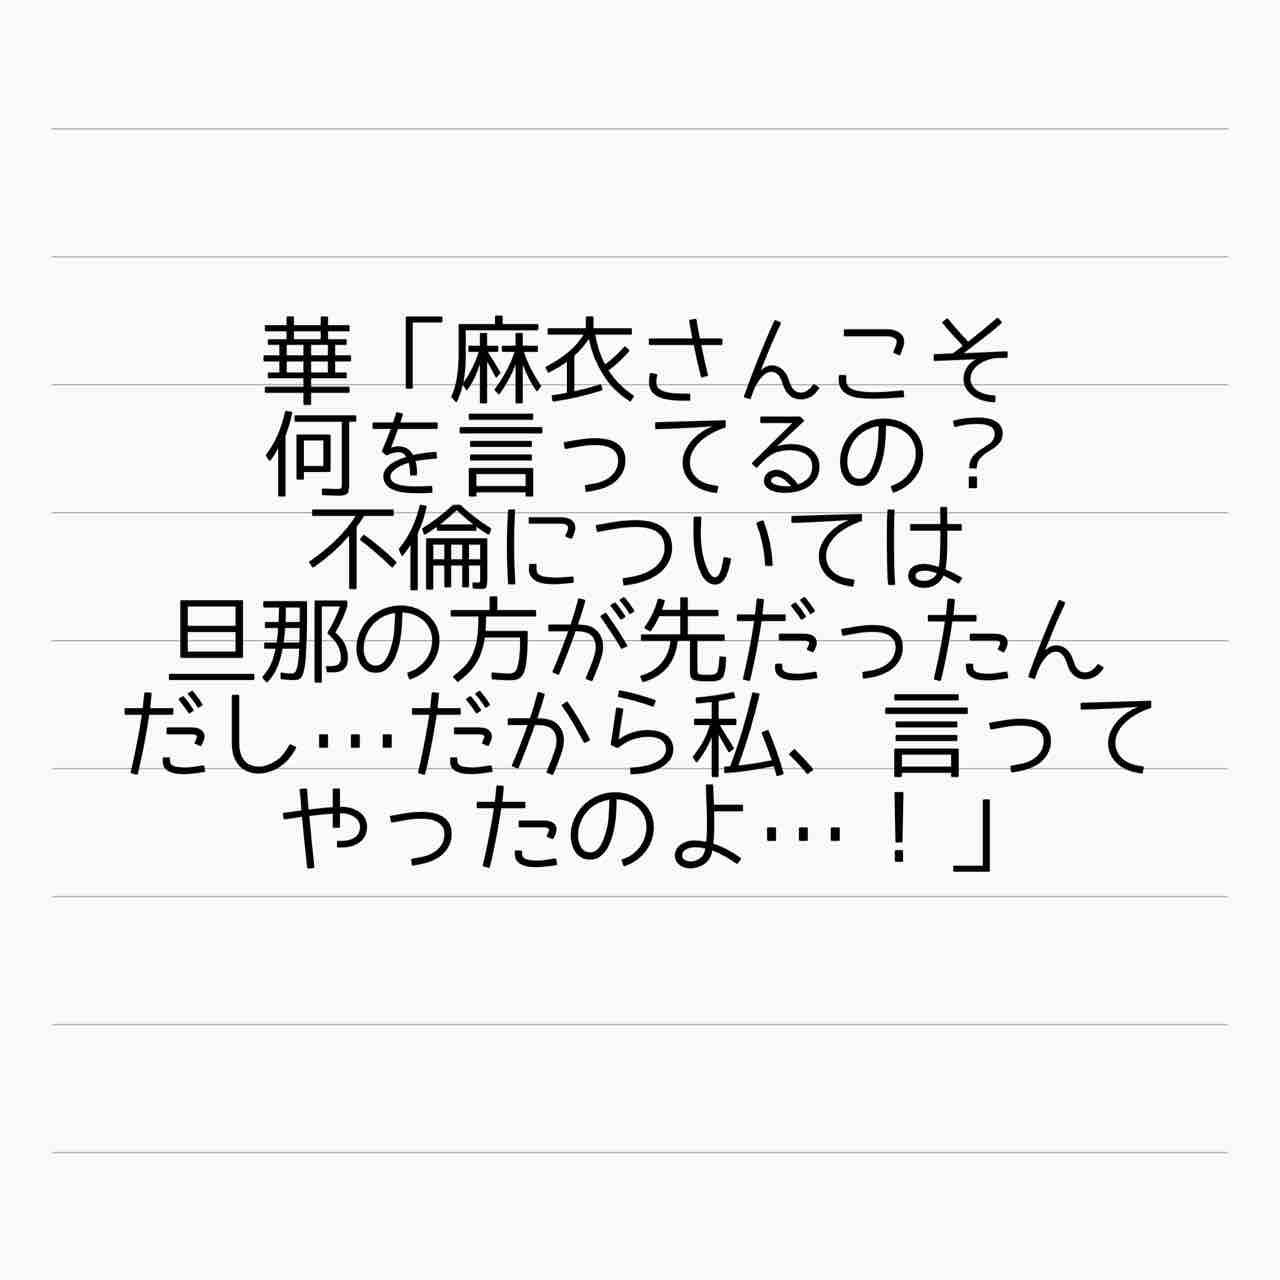 華「麻衣さんこそ
何を言ってるの？
不倫については
旦那の方が先だったん
だし…だから私、言って
やったのよ…！」